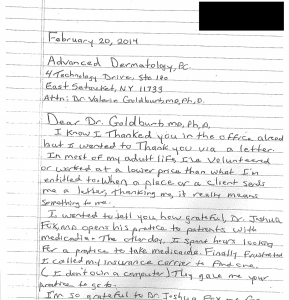 February 20, 2014
Advanced Dermatology, PC
4 Technology Drive, Ste 100
East Setauket, NY 11733
Attn: Dr Valerie Goldburt MD, Ph.D.
Dear Dr. Goldburt MD, Ph.D,
I know I Thanked you in the office
but I wanted to Thank you via a letter.
In most of my adult life I've Volunteered
or worked at a lower price than what I'm
entitled to. When a place or a Client sends
me a letter, Thanking me, it really means
something to me.
I wanted to tell you how grateful, Dr. Joshua
Fox, MD opens his pratice to patients with
The other day, I spent hours looking
For a pratice to take medicaid. Finally Frustrated
I called my insurance carrier to find one.
(I don't own a computer) They gave me your
pratice to go to.
I'm so grateful to Dr. Joshua Fox MD